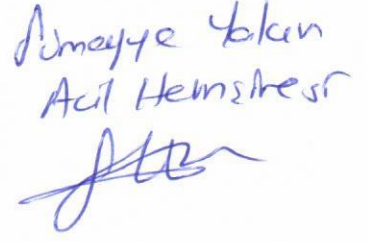 Sümeyye Yakın
Acil Hemşiresi